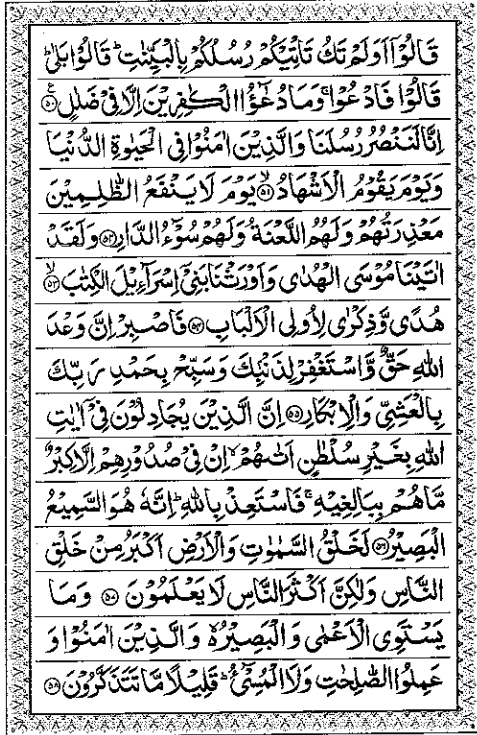 قَالُوْۤا اَوَلَمْ تَكُ تَاْتِيْكُمْ رُسُلُكُمْ بِالْبَيِّنٰتِ ؕ قَالُوْا بَلٰى ؕ
قَالُوْا فَادْعُوْا ۚ وَمَا دُعٰٓؤُا الْكٰفِرِيْنَ اِلَّا فِيْ ضَلٰلٍ ۧ ﴿۵۰﴾
اِنَّا لَنَنْصُرُ رُسُلَنَا وَالَّذِيْنَ اٰمَنُوْا فِي الْحَيٰوةِ الدُّنْيَا
وَيَوْمَ يَقُوْمُ الْاَشْهَادُ ۙ ﴿۵۱﴾ يَوْمَ لَا يَنْفَعُ الظّٰلِمِيْنَ
مَعْذِرَتُهُمْ وَلَهُمُ اللَّعْنَةُ وَلَهُمْ سُوْٓءُ الدَّارِ ﴿۵۲﴾ وَلَقَدْ
اٰتَيْنَا مُوْسَى الْهُدٰى وَاَوْرَثْنَا بَنِيْۤ اِسْرَآءِيْلَ الْكِتٰبَ ۙ ﴿۵۳﴾
هُدًى وَّذِكْرٰى لِاُولِي الْاَلْبَابِ ﴿۵۴﴾ فَاصْبِرْ اِنَّ وَعْدَ
اللّٰهِ حَقٌّ وَّاسْتَغْفِرْ لِذَنْۢبِكَ وَسَبِّحْ بِحَمْدِ رَبِّكَ
بِالْعَشِيِّ وَالْاِبْكَارِ ﴿۵۵﴾ اِنَّ الَّذِيْنَ يُجَادِلُوْنَ فِيْۤ اٰيٰتِ
اللّٰهِ بِغَيْرِ سُلْطٰنٍ اَتٰىهُمْ ۙ اِنْ فِيْ صُدُوْرِهِمْ اِلَّا كِبْرٌ
مَّا هُمْ بِبَالِغِيْهِ ۚ فَاسْتَعِذْ بِاللّٰهِ ؕ اِنَّهٗ هُوَ السَّمِيْعُ
الْبَصِيْرُ ﴿۵۶﴾ لَخَلْقُ السَّمٰوٰتِ وَالْاَرْضِ اَكْبَرُ مِنْ خَلْقِ
النَّاسِ وَلٰكِنَّ اَكْثَرَ النَّاسِ لَا يَعْلَمُوْنَ ﴿۵۷﴾ وَمَا
يَسْتَوِي الْاَعْمٰى وَالْبَصِيْرُ ۙ وَالَّذِيْنَ اٰمَنُوْا وَ
عَمِلُوا الصّٰلِحٰتِ وَلَا الْمُسِيْٓءُ ؕ قَلِيْلًا مَّا تَتَذَكَّرُوْنَ ﴿۵۸﴾